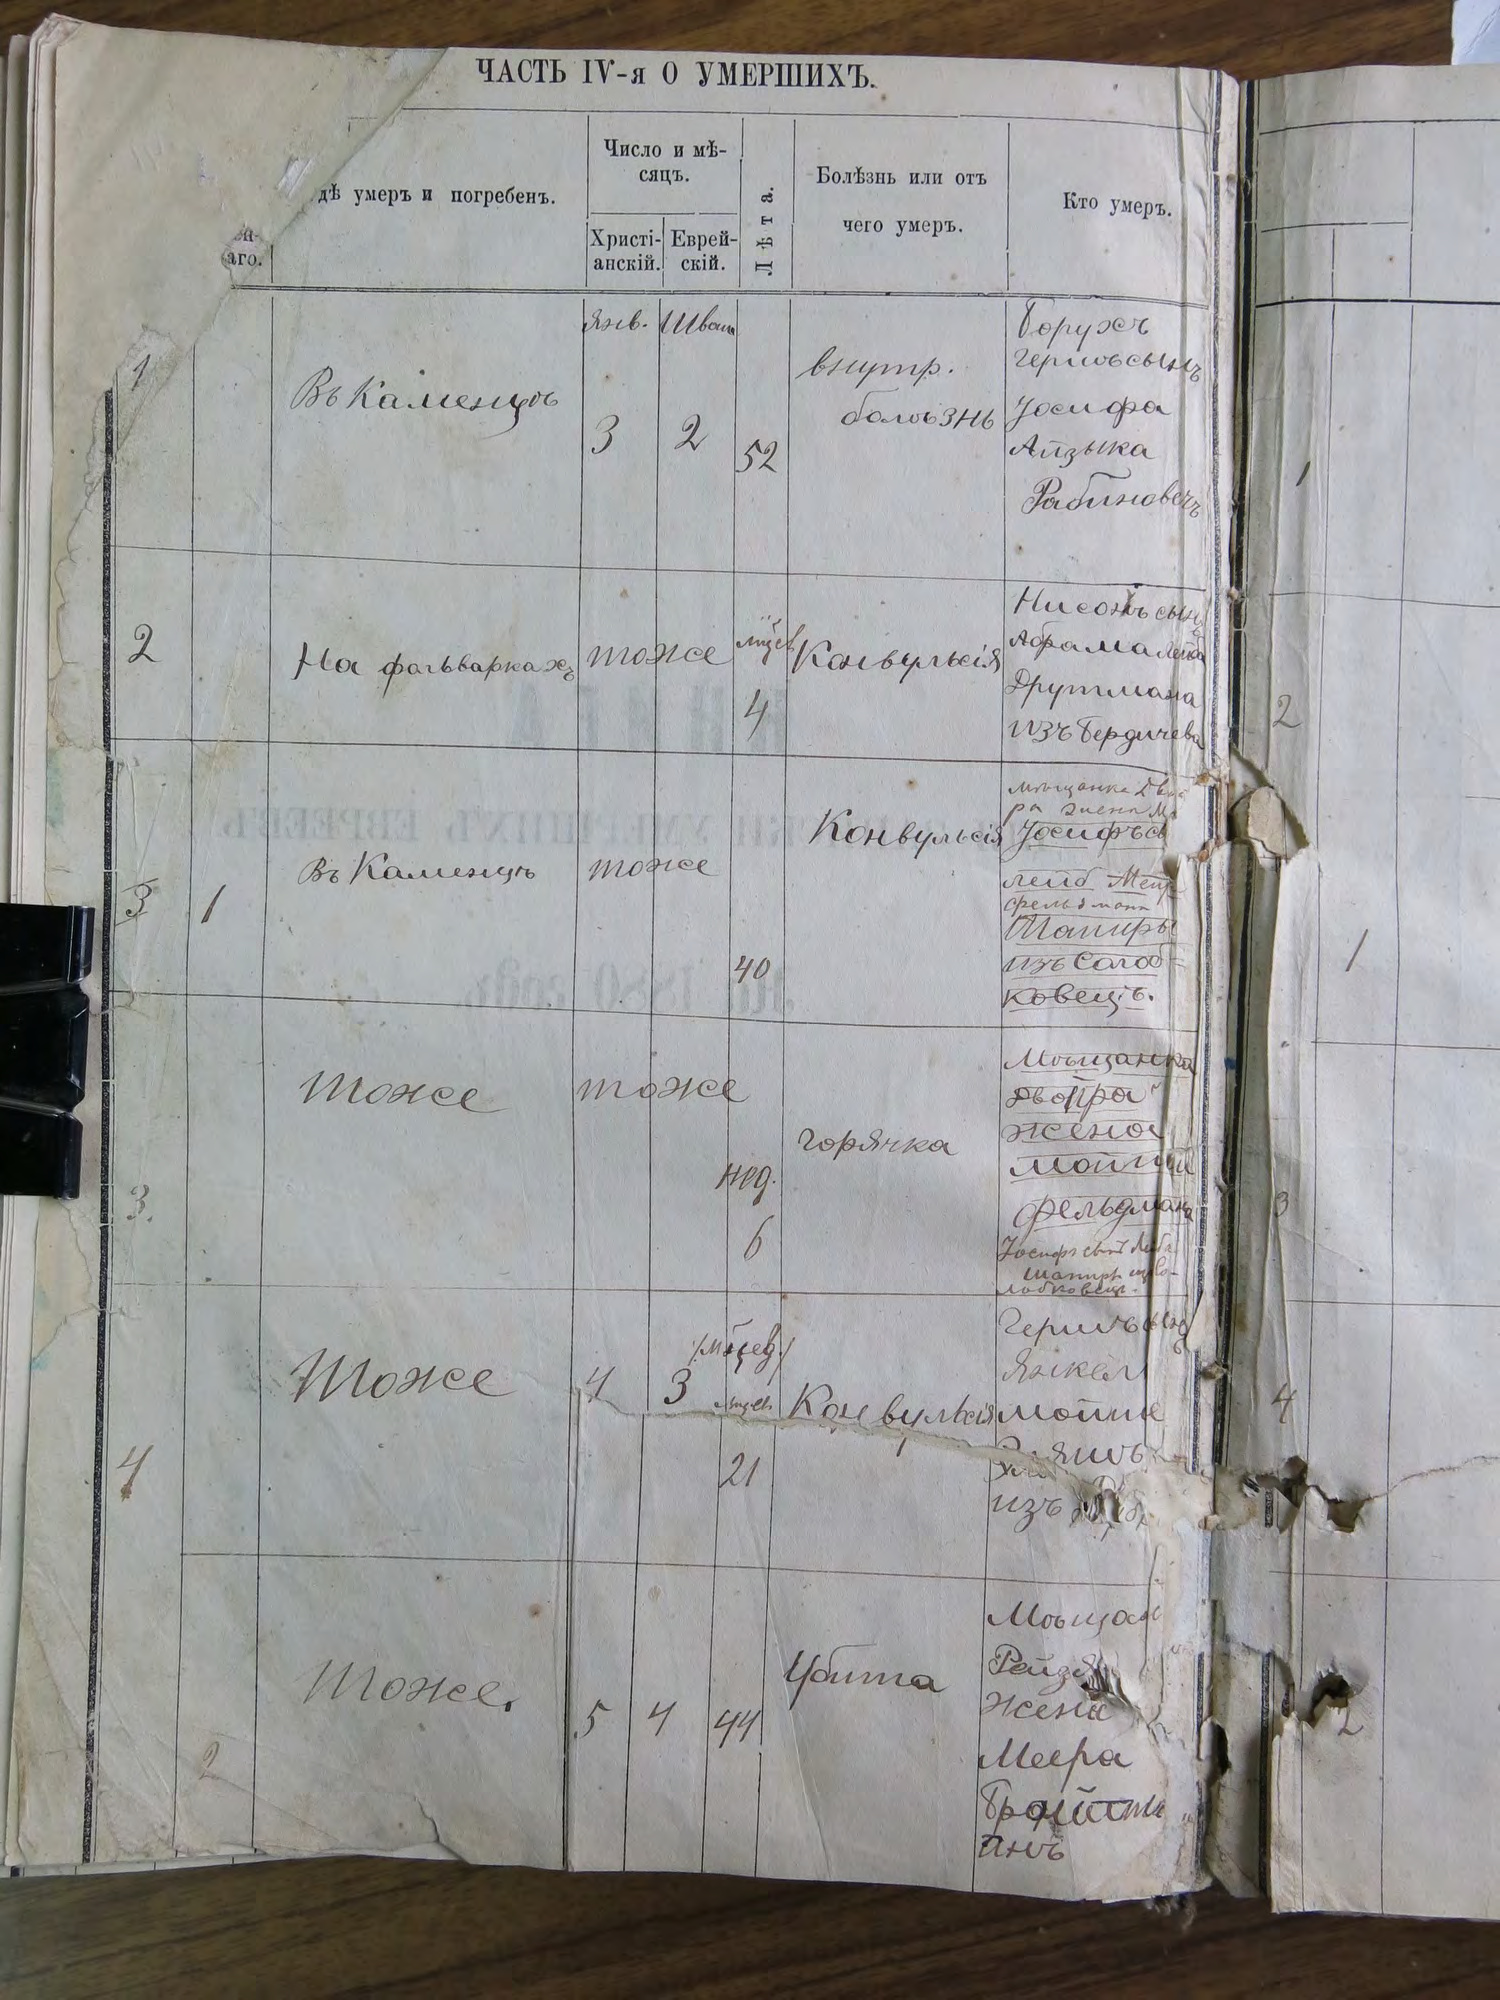 ЧАСТЬ IV-я О УМЕРШИХЪ.
аго.
дѣ умеръ и погребенъ.
Число и мѣ-
сяцъ.
Христі-
анскій.
Еврей-
скій.
Лѣта.
Болѣзнь или отъ
чего умеръ.
Кто умеръ.
1
Въ Каменцѣ
Янв.
3
Шват
2
52
внутр.
болѣзнь
Борухъ
Гершъ сынъ
Іосифа
Айзыка
Рабиновичъ
1
2
На фольваркахъ
тоже
4
Конвульсія
Нисонъ сынъ
Абрама Лейба
Друтмана
изъ Бердичева
2
3
1
Въ Каменцѣ
тоже
40
Конвульсія
мѣщанка Дво
ра жена Мо
Іосифъ с
Лейб
фельдмана
Шапиры
изъ Солоб-
ковецъ.
1
3.
тоже
тоже
нед.
6
горячка
Мѣщанка
Двойра
жена
Мойши
Фельдмана
Іосифъ сынъ Лейба
Шапиры изъ Со-
лобковец.
3
4
Тоже
4
3
мѣсяцев
21
Конвульсія
Гершъ сынъ
Янкел
Мойше
изъ
4
2
Тоже.
5
4
44
Убита
Мѣщан
Рейзя
жена
Меера
инъ
2